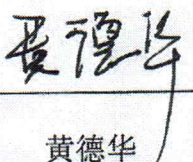 黄德华
黄德华